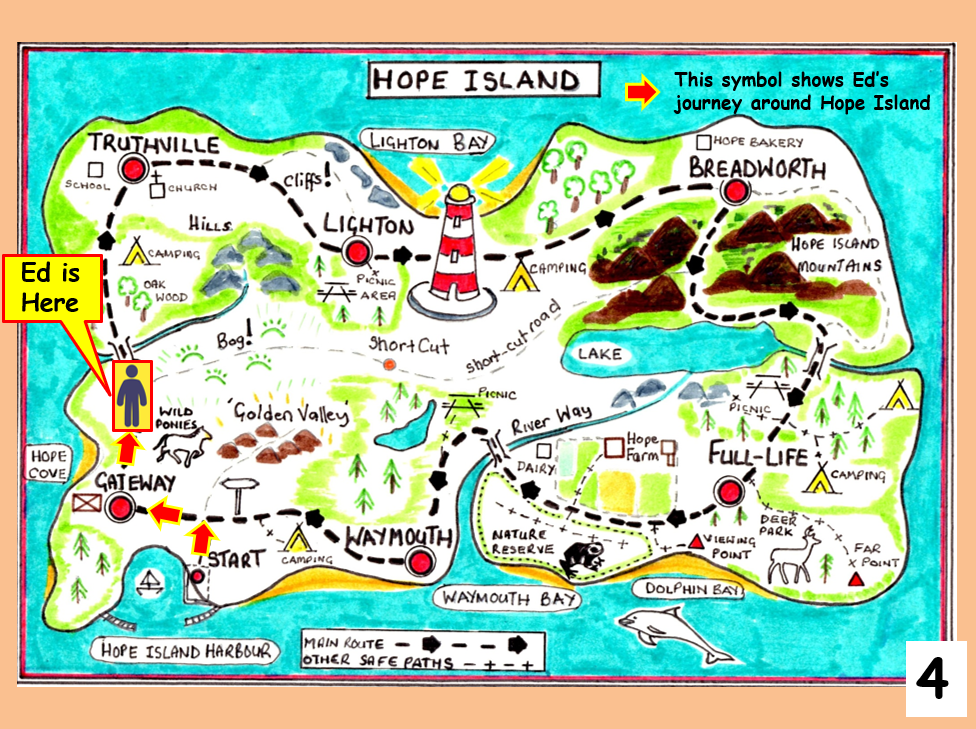 HOPE ISLAND
This symbol shows Ed's
journey around Hope Island
LIGHTON BAY
HOPE BAKERY
TRUTHVILLE
BREADWORTH
SCHOOL
CHURCH
Cliffs!
LIGHTON
HILLS
CAMPING
OAK
WOOD
PICNIC
AREA
CAMPING
HOPE ISLAND
MOUNTAINS
Ed is
Here
Bog!
Short Cut
Short-cut road
LAKE
WILD
PONIES
'Golden Valley'
PICNIC
River Way
PICNIC
HOPE
COVE
GATEWAY
DAIRY
Hope
Farm
FULL-LIFE
CAMPING
START
CAMPING
WAYMOUTH
NATURE
RESERVE
VIEWING
POINT
DEER
PARK
FAR
POINT
WAYMOUTH BAY
DOLPHIN BAY
HOPE ISLAND HARBOUR
MAIN ROUTE
OTHER SAFE PATHS
4